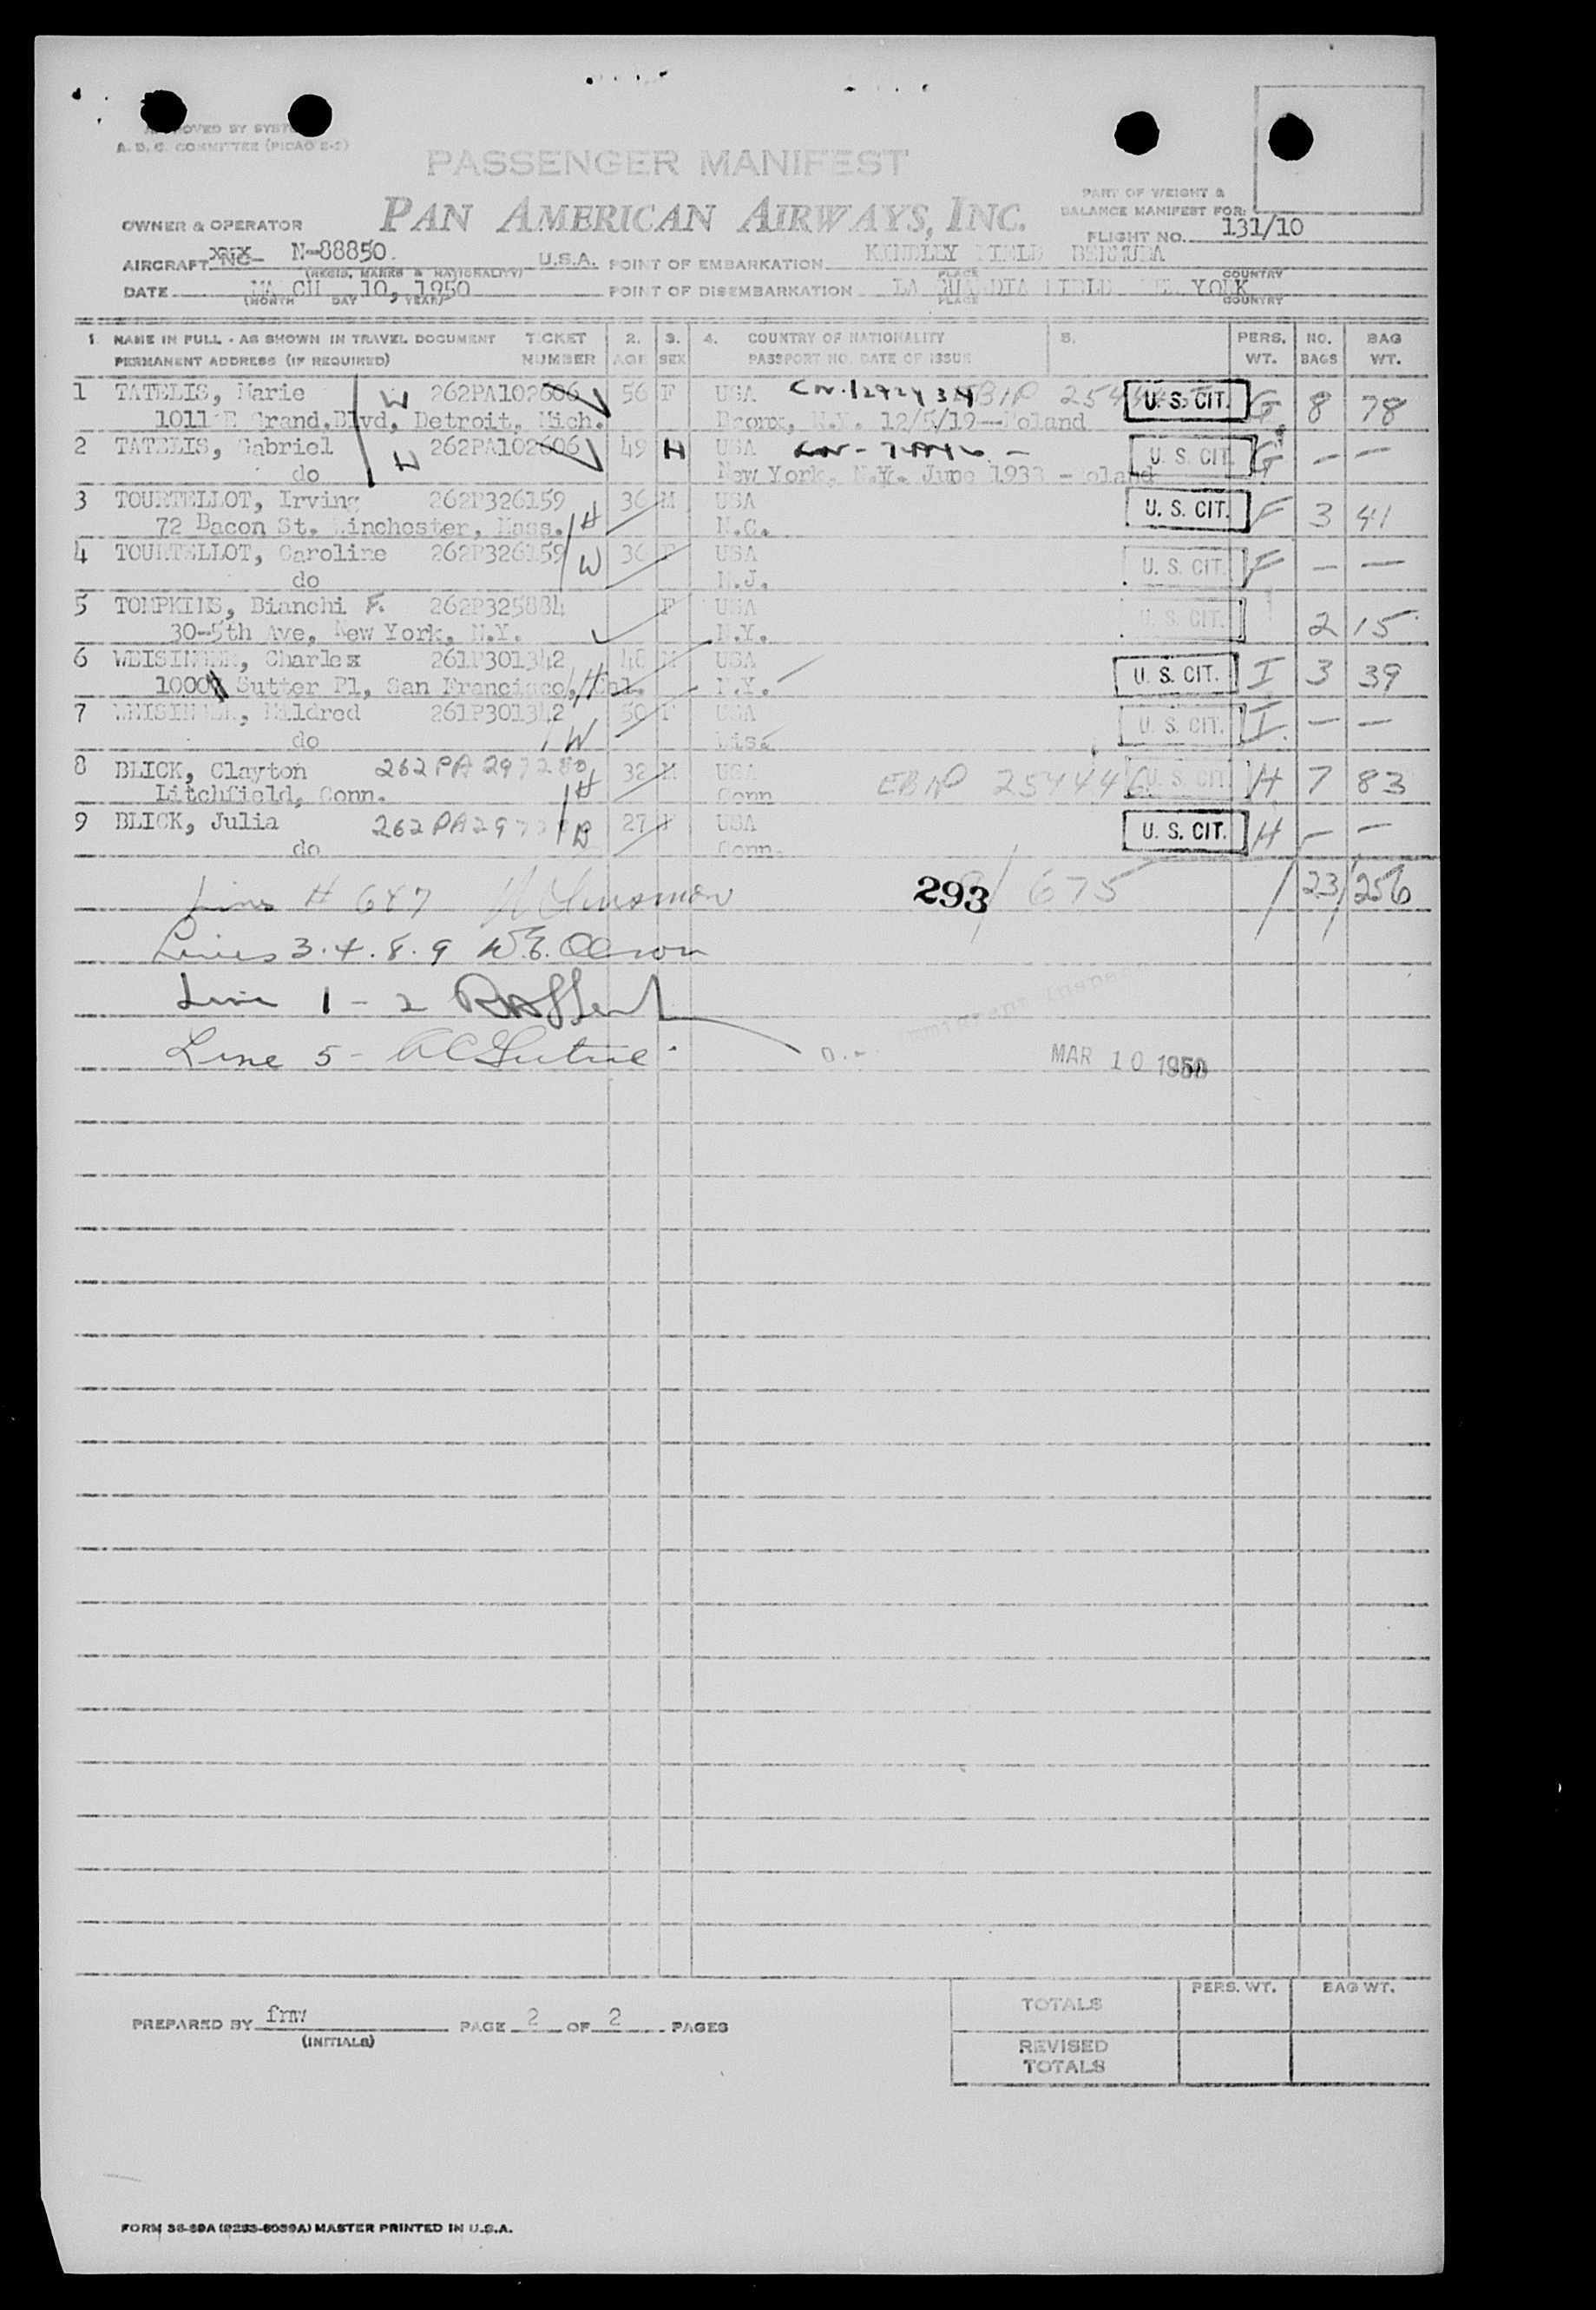 APPROVED BY SYSTEM
A. D. C. COMMITTEE (PICAO E-2)
PASSENGER MANIFEST
PAN AMERICAN AIRWAYS, INC.
PART OF WEIGHT &
BALANCE MANIFEST FOR:
FLIGHT NO. 131/10
OWNER & OPERATOR
AIRCRAFT NC- N-88850. U.S.A. POINT OF EMBARKATION KINDLEY FIELD BERMUDA
(REGIS. MARKS & NATIONALITY) PLACE COUNTRY
DATE MARCH 10, 1950 POINT OF DISEMBARKATION LA GUARDIA FIELD NEW YORK
(MONTH DAY YEAR) PLACE COUNTRY
1. NAME IN FULL - AS SHOWN IN TRAVEL DOCUMENT TICKET 2. 3. 4. COUNTRY OF NATIONALITY 5. PERS. NO. BAG
PERMANENT ADDRESS (IF REQUIRED) NUMBER AGE SEX PASSPORT NO. DATE OF ISSUE WT. BAGS WT.
1 TATELIS, Marie W 262PA102606 56 F USA U. S. CIT. G 8 78
1011 E Grand.Blvd, Detroit, Mich. Bronx, N.Y. 12/5/19--Poland
2 TATELIS, Gabriel H 262PA102606 49 M USA U. S. CIT. G — —
do New York, N.Y. June 1933 - Poland
3 TOURTELLOT, Irving 262P326159 36 M USA U. S. CIT. F 3 41
72 Bacon St. Winchester, Mass. H N.C.
4 TOURTELLOT, Caroline 262P326159 36 F USA U. S. CIT. F — —
do W N.J.
5 TOMPKINS, Bianchi F. 262P325884 F USA U. S. CIT. 2 15
30-5th Ave, New York, N.Y. N.Y.
6 WEISINGER, Charles 261P301342 48 M USA U. S. CIT. I 3 39
1000 Sutter Pl, San Francisco, Cal. H N.Y.
7 WEISINGER, Mildred 261P301342 50 F USA U. S. CIT. I — —
do W
8 BLICK, Clayton 262PA297280 32 M USA 254446 U. S. CIT. H 7 83
Litchfield, Conn. H Conn
9 BLICK, Julia 27 F USA U. S. CIT. H — —
do Conn.
293 675 23 256
Lines 3.4.8.9
Line 1 - 2
Line 5 -
MAR 10 1950
TOTALS PERS. WT. BAG WT.
PREPARED BY frw PAGE 2 OF 2 PAGES
(INITIALS)
REVISED
TOTALS
FORM 36-89A (9233-6039A) MASTER PRINTED IN U.S.A.